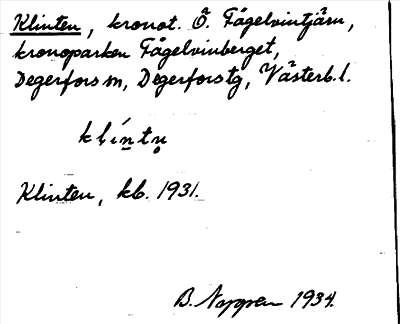 Klinten, kronot. Ö. Fågelvintjärn,
kronoparken Fågelvinberget,
Degerfors sn, Degerfors tg, Västerb. l.
Klinten, kb. 1931.
B. 1934.